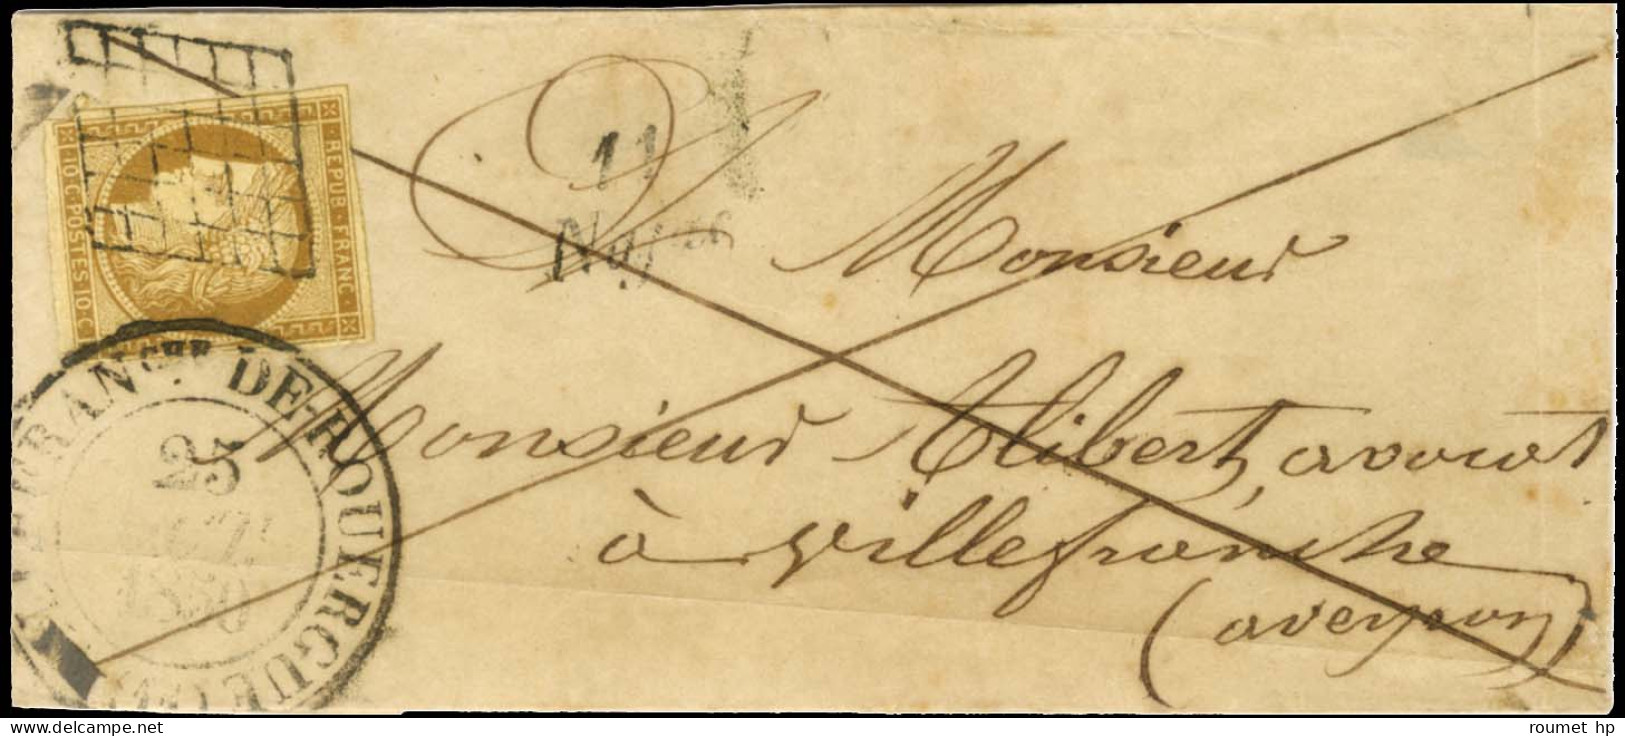 REPUB · FRANC ·
· 10 · C · POSTES · 10 · C ·
11
Monsieur
Monsieur Alibert, avocat
à Villefranche
(aveyron)
DE-ROUERGUE
25
1850
roumet hp